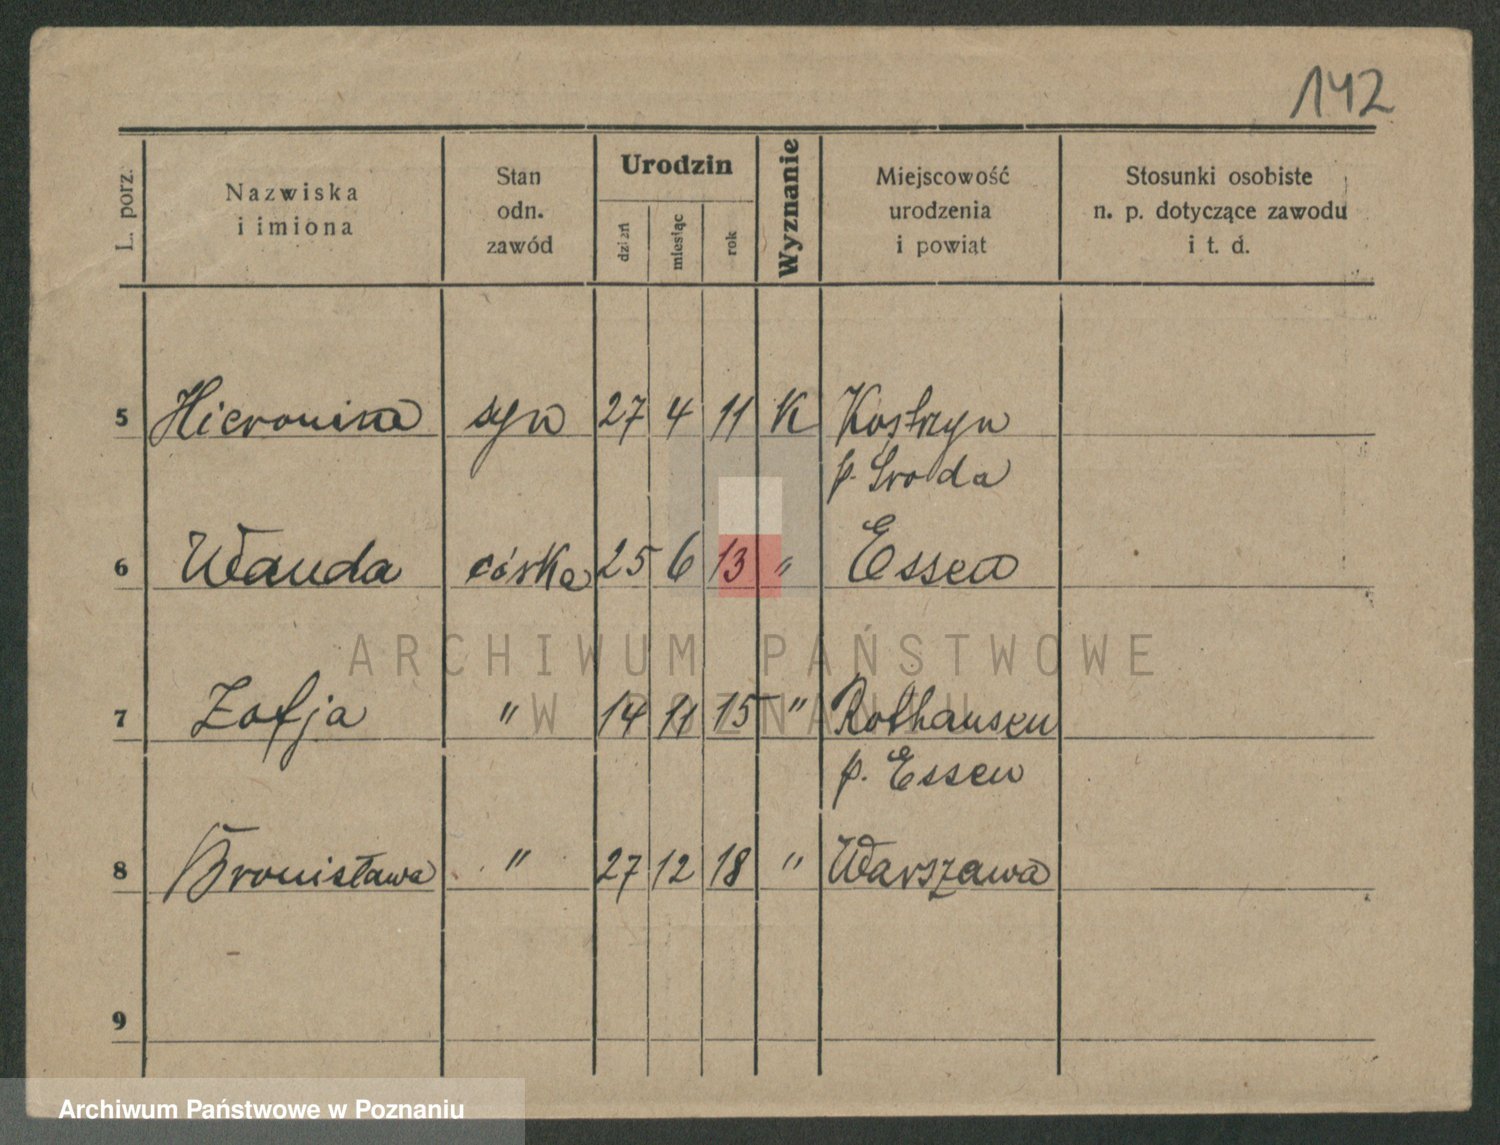 142
L. porz.
Nazwiska
i imiona
Stan
odn.
zawód
Urodzin
dzień
miesiąc
rok
Wyznanie
Miejscowość
urodzenia
i powiat
Stosunki osobiste
n. p. dotyczące zawodu
i t. d.
5 syn 27 4 11 K Kostrzyn
p. Sroda
6 Wanda córka 25 6 13 " Essen
7 Zofja " 14 11 15 " Rothausen
p. Essen
8 Bronisława " 27 12 18 " Warszawa
9
ARCHIWUM PAŃSTWOWE
W POZNANIU
Archiwum Państwowe w Poznaniu